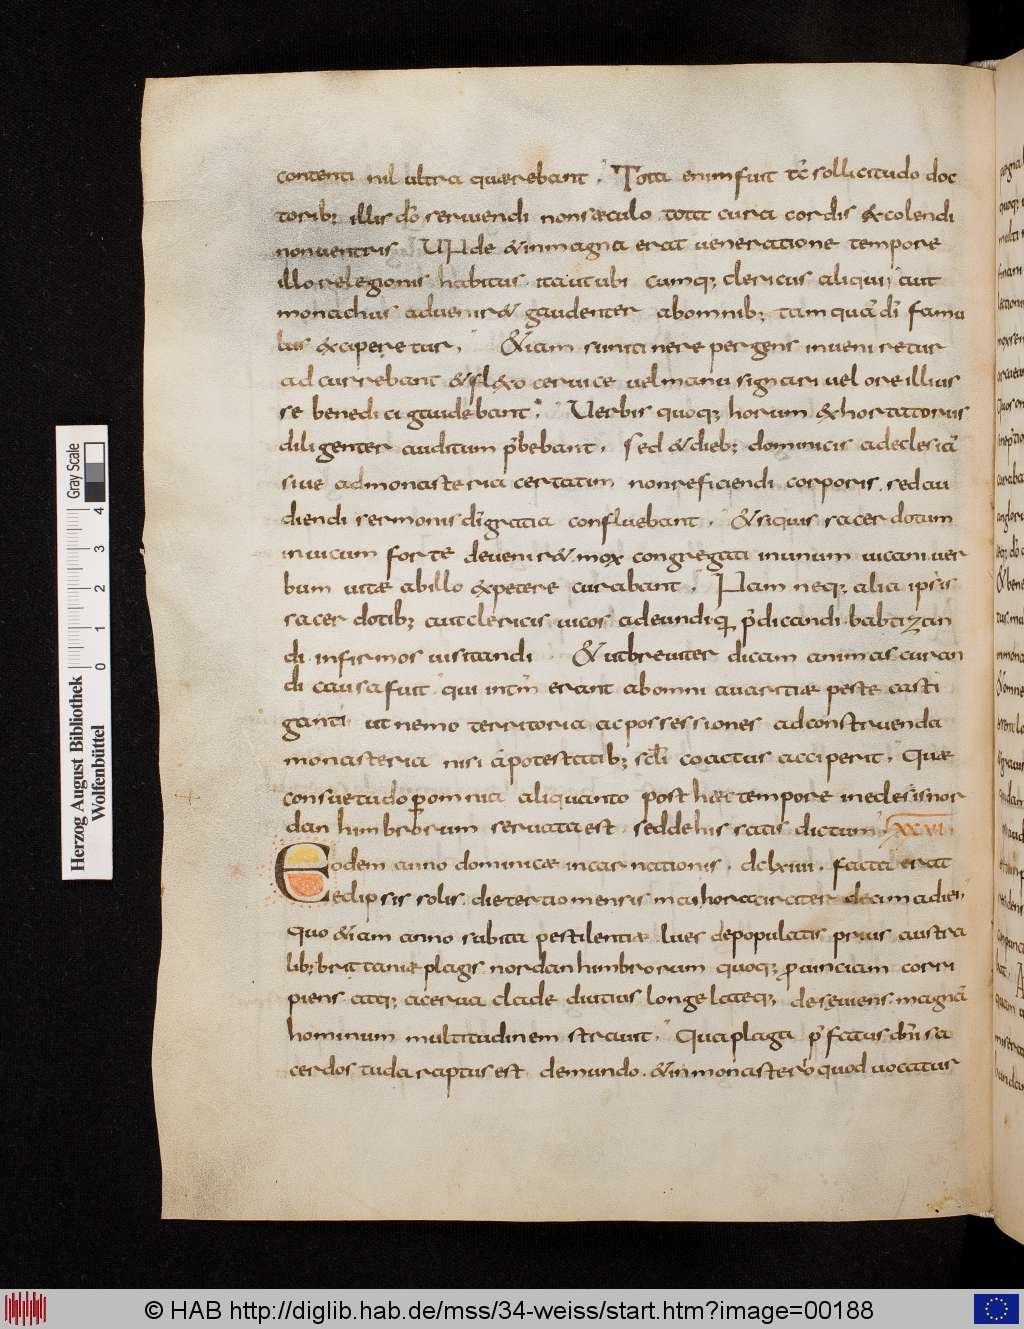 contenti nil ultra quærebant. Tota enim fuit tc̄ sollicitudo doc
torib; illis dō serviendi non sæculo. tota cura cordis &colendi
non ventris. UNde &inmagna erat veneratione tempore
illo relegionis habitus. ita ut ubi cumq; clericus aliqui aut
monachus advenir& gaudenter abomnib; tamquā dī famu
lus exciperetur. &iam si initinere pergens inveniretur
adcurrebant &flexo cervice vel manu signari vel ore illius
se benedici gaudebant. Verbis quoq; horum exhortatorus
diligenter auditum p̄bebant. Sed &dieb; dominicis adeclesiā
sive admonasteria certatim non reficiendi corporis. sed au
diendi sermonis dī gratia confluebant. &siquis sacerdotum
invicum forte devenir& mox congregati inunum vicani ver
bum vitæ abillo expetere curabant. Nam neq; alia ipsis
sacerdotib; aut clericis vicos adeundi q p̄dicandi babtizan
di. infirmos visitandi &utbreviter dicam animas curan
di causa fuit. qui intm̄ erant abomni avaritiæ peste casti
gati ut nemo territoria ac possessiones adconstruenda
monasteria nisi apotestatib; scl̄i coactus acciperit. Quæ
consuetudo p omnia aliquanto post hæc tempore ineclesiis nor
danhimbrorum servata est. sed de his satis dictum. XXVI.
Eodem anno dominicæ incarnationis. dclxiiii. facta erat
eclipsis solis. die tertio mensis mai hora circiter decima diei.
Quo &iam anno subita pestilentiæ lues depopulatis prius austra
lib; brittaniæ plagis nordanhimbrorum quoq; provinciam corri
piens atq; acerva clade diutius longe lateq; deseviens. magnā
hominum multitudinem stravit. Qua plaga p̄fatus dn̄i sa
cerdos tuda raptus est demundo. &inmonasterio quod vocatur
Herzog August Bibliothek
Wolfenbüttel
Gray Scale
0 1 2 3 4
© HAB http://diglib.hab.de/mss/34-weiss/start.htm?image=00188